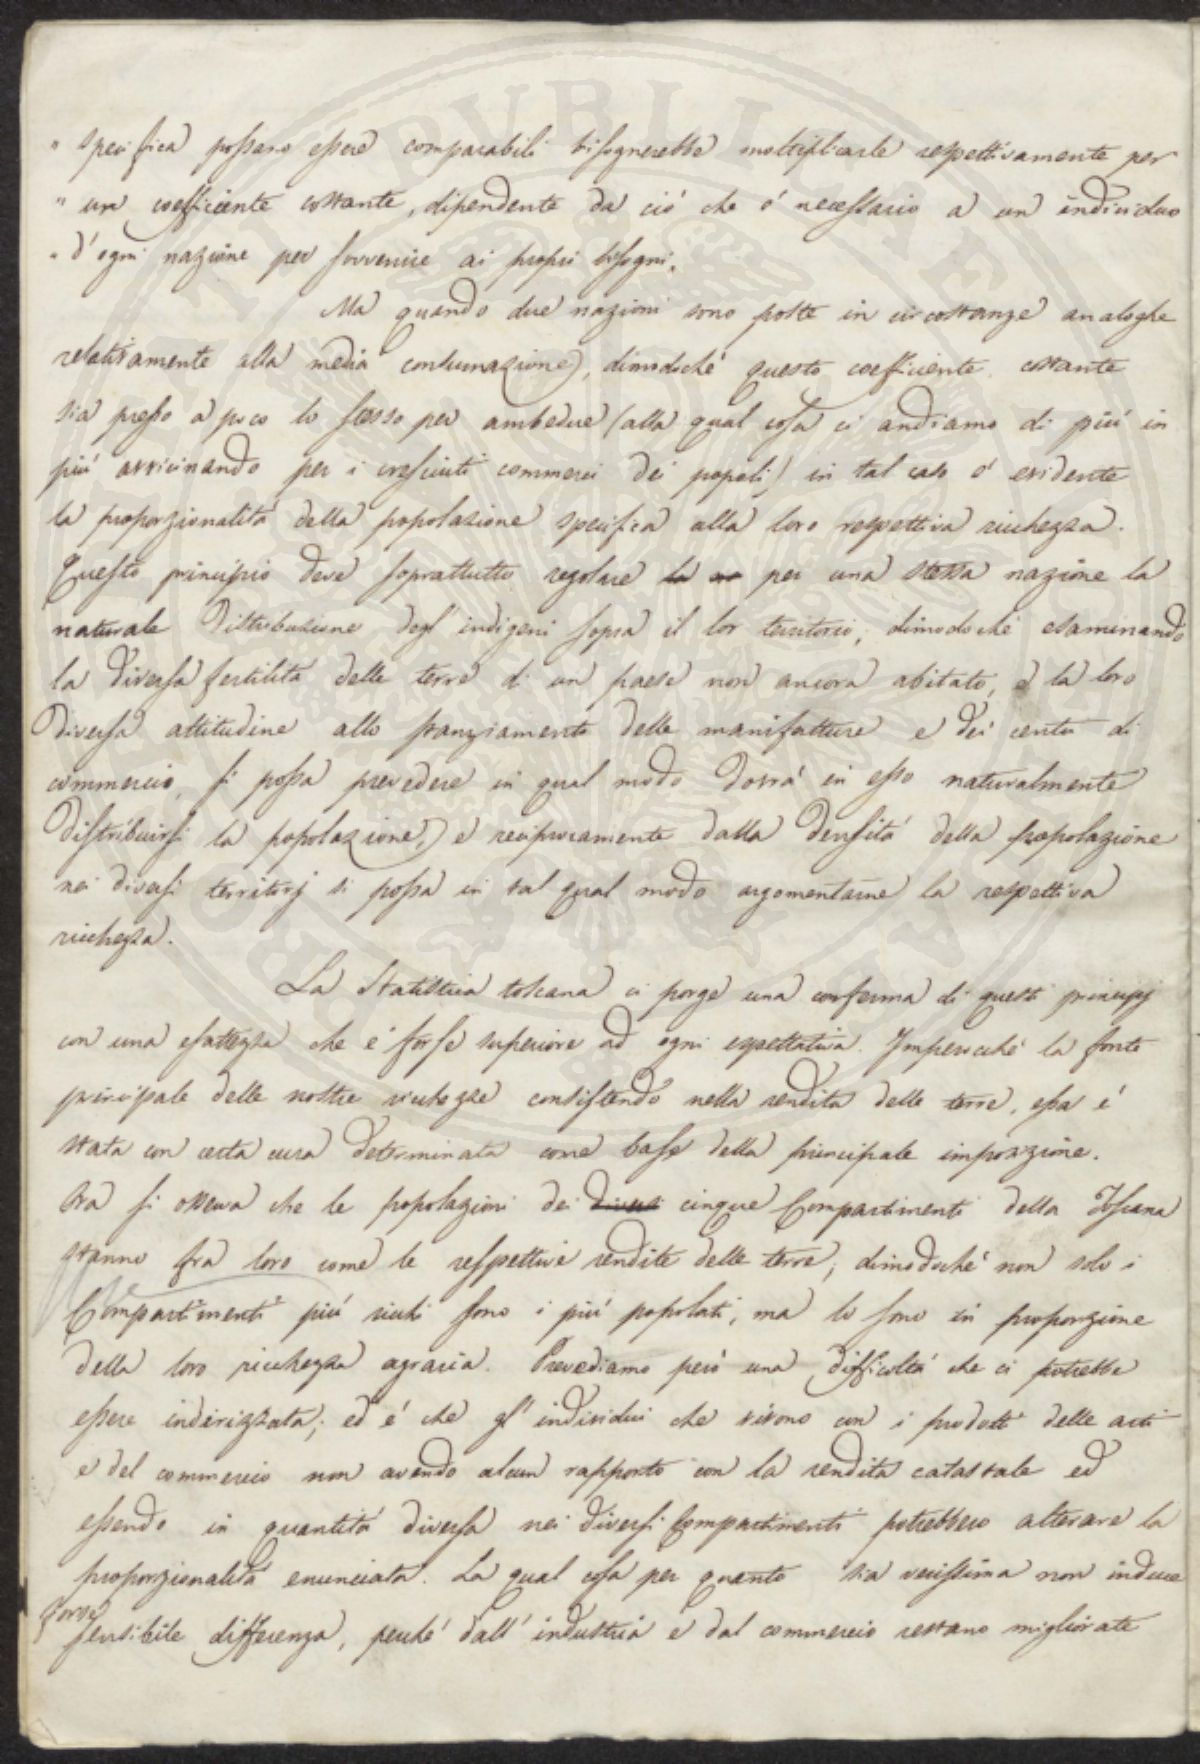 " specifica possano essere comparabili bisognerebbe moltiplicarle respettivamente per
" un coefficiente costante, dipendente da ciò che è necessario a un individuo
" d'ogni nazione per sovvenire ai propri bisogni.
Ma quando due nazioni sono poste in circostanze analoghe
relativamente alla media consumazione, dimodochè questo coefficiente costante
sia presso a poco lo stesso per ambedue (alla qual cosa ci andiamo di più in
più avvicinando per i cresciuti commerci dei popoli) in tal caso è evidente
la proporzionalità della popolazione specifica alla loro respettiva ricchezza.
Questo principio deve soprattutto regolare la per una stessa nazione la
naturale distribuzione degl'indigeni sopra il lor territorio; dimodochè esaminando
la diversa fertilità delle terre di un paese non ancora abitato, e la loro
diversa attitudine allo stanziamento delle manifatture e dei centri di
commercio, si possa prevedere in qual modo dovrà in esso naturalmente
distribuirsi la popolazione, e reciprocamente dalla densità della popolazione
nei diversi territorj si possa in tal qual modo argomentarne la respettiva
ricchezza.
La Statistica toscana ci porge una conferma di questi principj
con una esattezza che è forse superiore ad ogni espettativa. Imperocchè la fonte
principale delle nostre ricchezze consistendo nella rendita delle terre, essa è
stata con certa cura determinata come base della principale imposizione.
Ora si osserva che le popolazioni dei diversi cinque Compartimenti della Toscana
stanno fra loro come le respettive rendite delle terre; dimodochè non solo i
Compartimenti più ricchi sono i più popolati, ma lo sono in proporzione
della loro ricchezza agraria. Prevediamo però una difficoltà che ci potrebbe
essere indirizzata; ed è che gl'individui che vivono con i prodotti delle arti
e del commercio non avendo alcun rapporto con la rendita catastale ed
essendo in quantità diversa nei diversi Compartimenti potrebbero alterare la
proporzionalità enunciata. La qual cosa per quanto sia verissima non induce
forse
sensibile differenza, perchè dall'industria e dal commercio restano migliorate